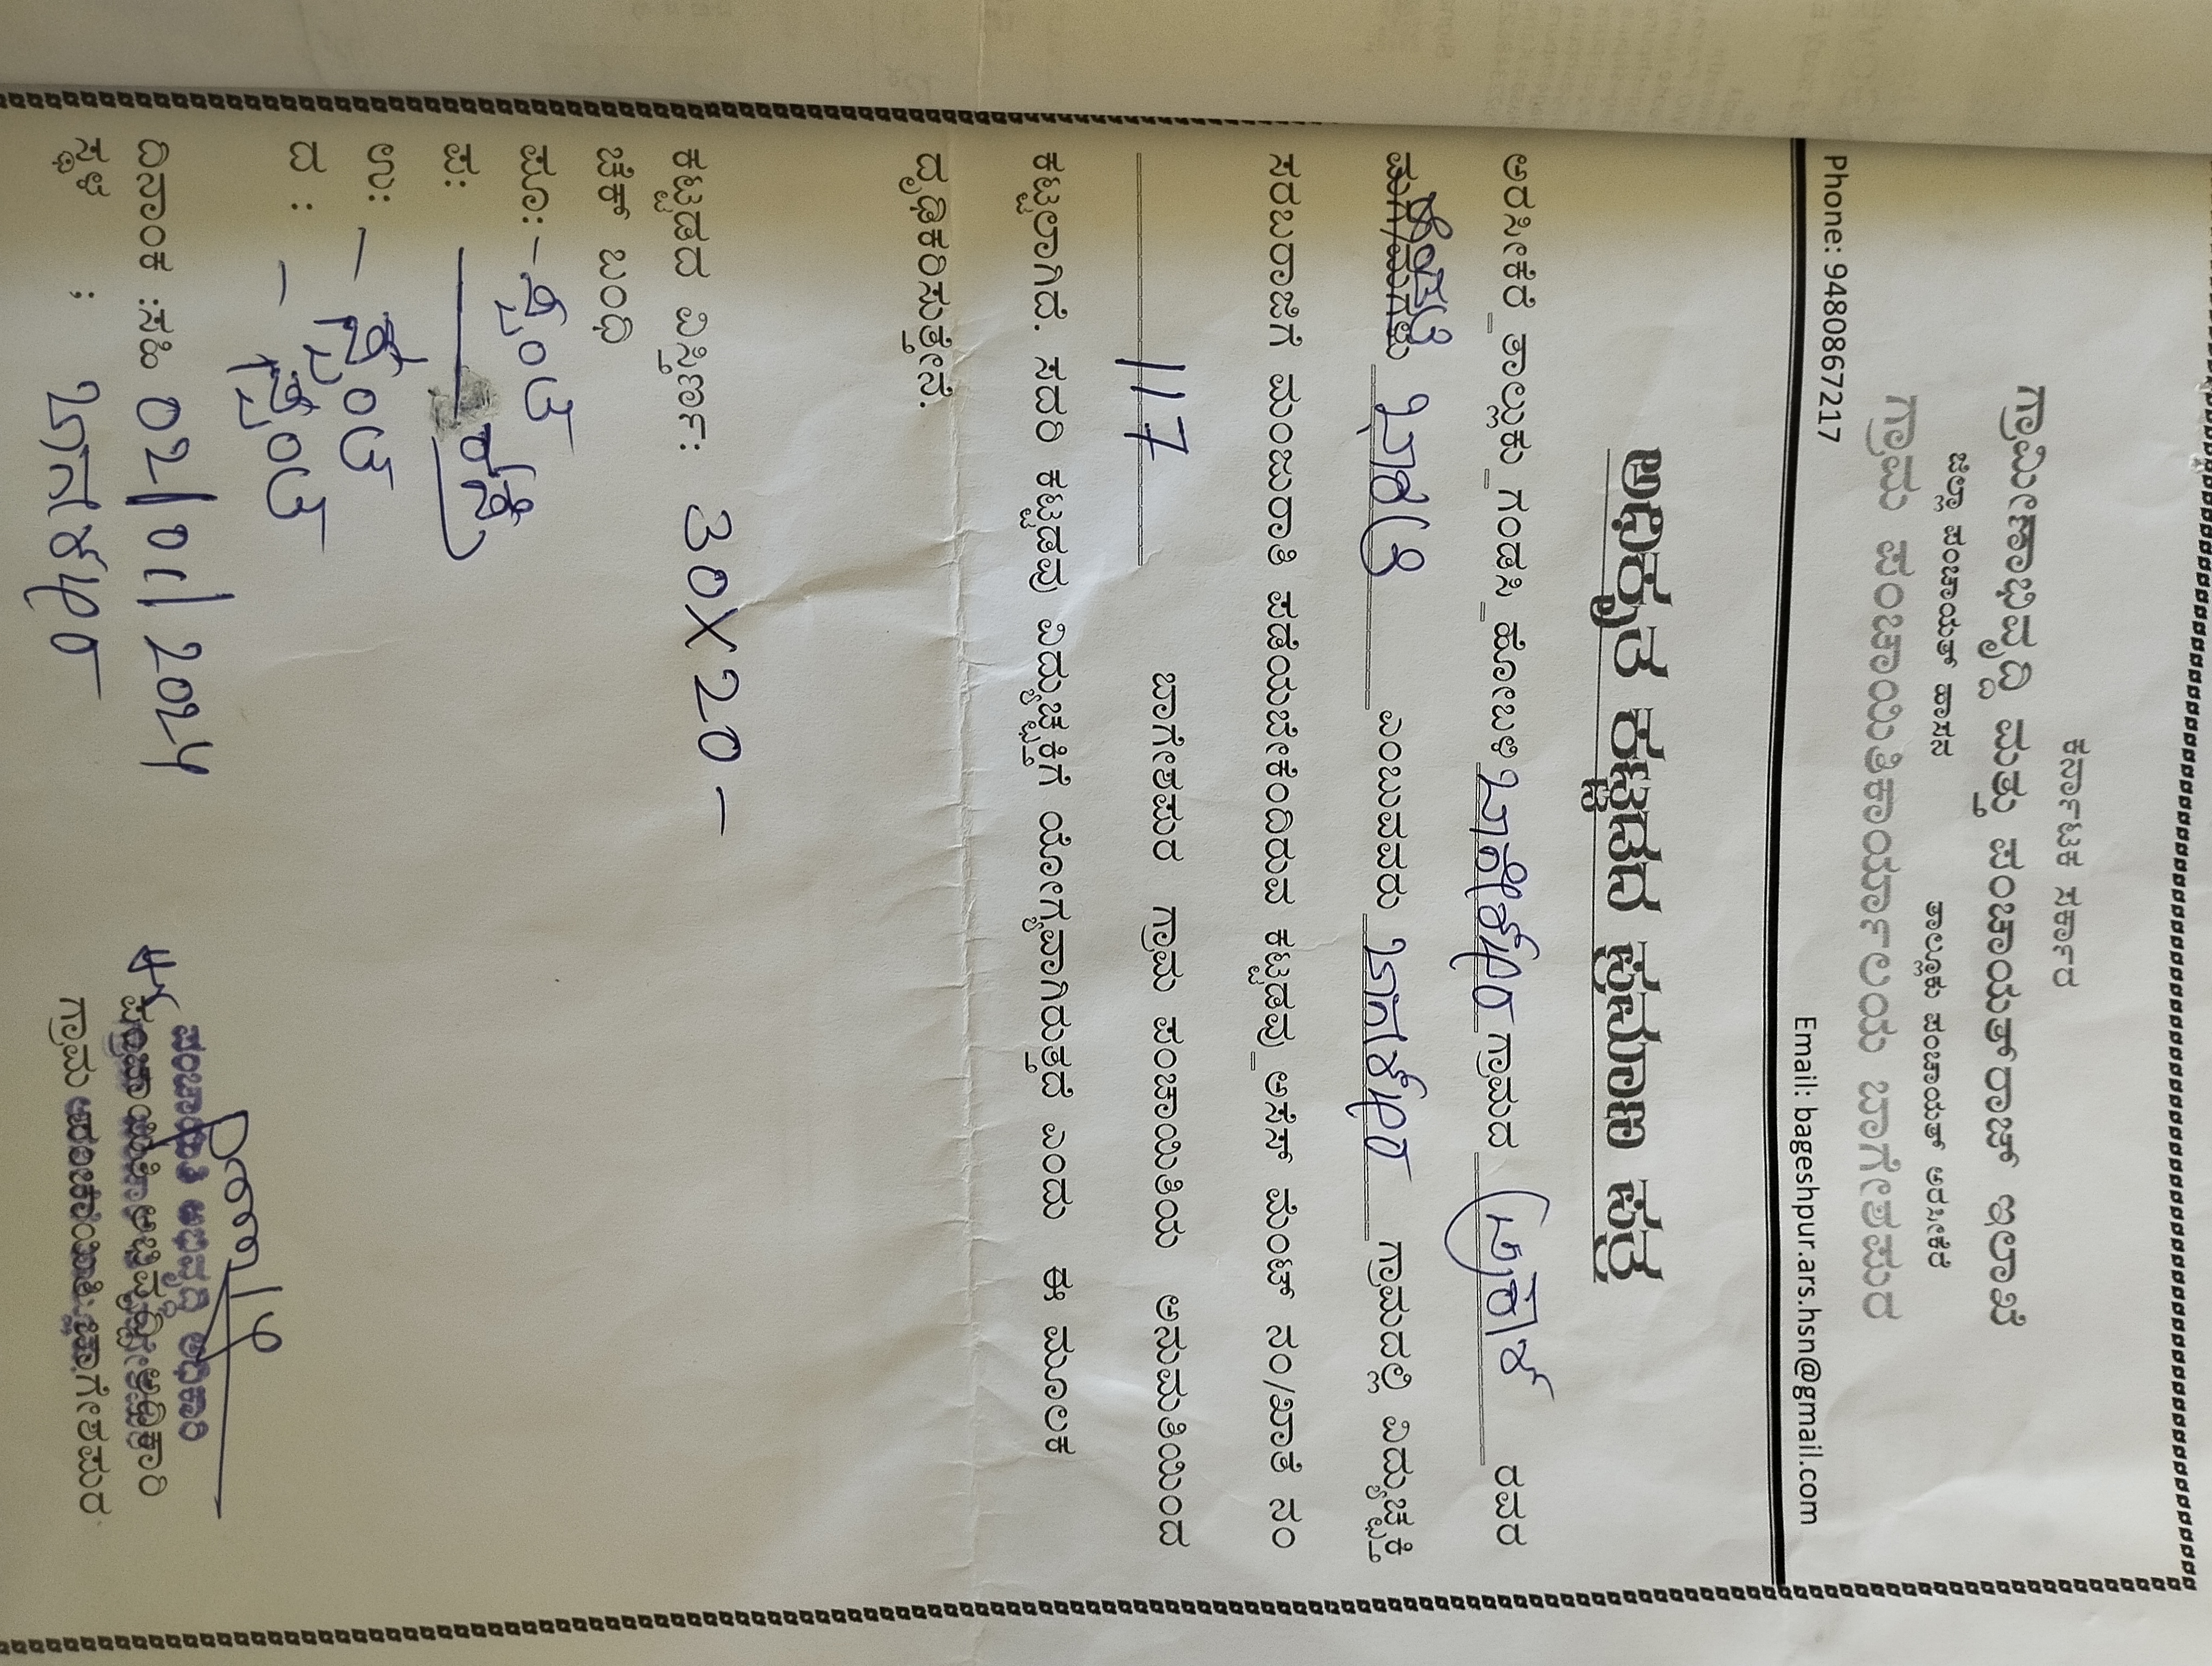 ಕರ್ನಾಟಕ ಸರ್ಕಾರ
ಗ್ರಾಮೀಣಾಭಿವೃದ್ಧಿ ಮತ್ತು ಪಂಚಾಯತ್‌ರಾಜ್ ಇಲಾಖೆ
ಜಿಲ್ಲಾ ಪಂಚಾಯತ್ ಹಾಸನ ತಾಲ್ಲೂಕು ಪಂಚಾಯತ್ ಅರಸೀಕೆರೆ
ಗ್ರಾಮ ಪಂಚಾಯಿತಿಕಾರ್ಯಾಲಯ ಬಾಗೇಶಪುರ
Phone: 9480867217 Email: bageshpur.ars.hsn@gmail.com
ಅಧಿಕೃತ ಕಟ್ಟಡದ ಪ್ರಮಾಣ ಪತ್ರ
ಅರಸೀಕೆರೆ ತಾಲ್ಲುಕು ಗಂಡಸಿ ಹೋಬಳಿ ಬಾಗೇಶಪುರ ಗ್ರಾಮದ ರವರ
ಮಗ/ಮಗಳು ಎಂಬುವವರು ಬಾಗೇಶಪುರ ಗ್ರಾಮದಲ್ಲಿ ವಿದ್ಯುಚ್ಛಕ್ತಿ
ಸರಬರಾಜಿಗೆ ಮಂಜೂರಾತಿ ಪಡೆಯಬೇಕೆಂದಿರುವ ಕಟ್ಟಡವು_ಅಸೆಸ್ ಮೆಂಟ್ ನಂ/ಖಾತೆ ನಂ
117 ಬಾಗೇಶಪುರ ಗ್ರಾಮ ಪಂಚಾಯಿತಿಯ ಅನುಮತಿಯಿಂದ
ಕಟ್ಟಲಾಗಿದೆ. ಸದರಿ ಕಟ್ಟಡವು ವಿದ್ಯುಚ್ಛಕ್ತಿಗೆ ಯೋಗ್ಯವಾಗಿರುತ್ತದೆ ಎಂದು ಈ ಮೂಲಕ
ದೃಢಿಕರಿಸುತ್ತೇನೆ.
ಕಟ್ಟಡದ ವಿಸ್ತೀರ್ಣ: 30X20 -
ಚೆಕ್ ಬಂಧಿ
ಪೂ: -
ಪ: ರಸ್ತೆ
ಉ: -
ದ : -
ದಿನಾಂಕ :ಸಹಿ 02/01/2024
ಸ್ಥಳ : ಬಾಗೇಶಪುರ
ಪಂಚಾಯಿತಿ ಅಭಿವೃದ್ಧಿ ಅಧಿಕಾರಿ
ಪಂಚಾಯಿತಿ ಅಭಿವೃದ್ಧಿ ಅಧಿಕಾರಿ
ಗ್ರಾಮ ಪಂಚಾಯಿತಿ ಬಾಗೇಶಪುರ